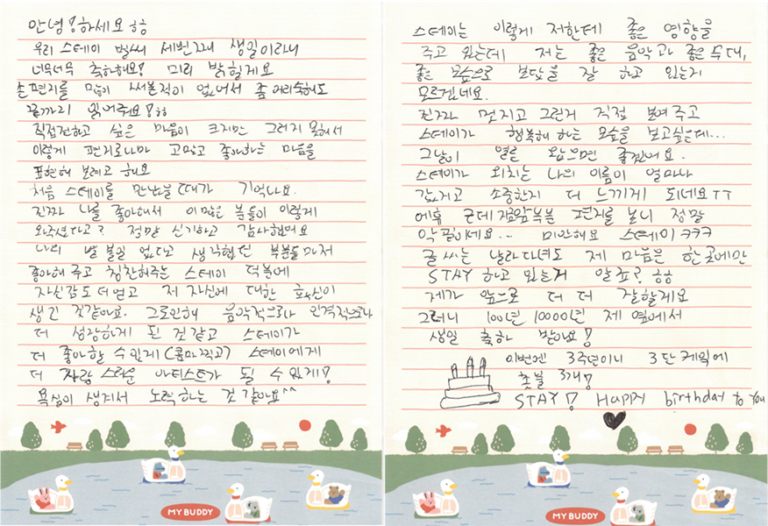 안녕!하세요 ㅎㅎ
우리 스테이 벌써 세번째 생일이라니
너무너무 축하해요! 미리 밝힐게요
손편지를 많이 써본적이 없어서 좀 어리숙해도
끝까지 읽어주요! ㅎㅎ
직접전하고 싶은 마음이 크지만 그러지 못해서
이렇게 편지로나마 고맙고 좋아하는 마음을
표현해 보려고 해요
처음 스테이를 만났을때가 기억나요.
진짜 나를 좋아해서 이많은 분들이 이렇게
와주셨다고? 정말 신기하고 감사했어요
나의 별 볼일 없다고 생각했던 부분들마저
좋아해 주고 칭찬해주는 스테이 덕분에
자신감도 더 얻고 저 자신에 대한 확신이
생긴 것같아요. 그로인해 음악적으로나 인격적으로나
더 성장하게 된 것 같고 스테이가
더 좋아할 수 있게 (콤마찍고) 스테이에게
더 자랑스러운 아티스트가 될 수 있게!
욕심이 생겨서 노력하는 것 같아요^^
MY BUDDY
스테이는 이렇게 저한테 좋은 영향을
주고 있는데 저는 좋은 음악과 좋은 무대,
좋은 모습으로 보답을 잘 하고 있는지
모르겠네요.
진짜 멋지고 그런거 직접 보여 주고
스테이가 행복해 하는 모습을 보고싶은데...
그날이 얼른 왔으면 좋겠어요.
스테이가 외치는 나의 이름이 얼마나
값지고 소중한지 더 느끼게 되네요ㅠㅠ
에휴 근데 앞부분 편지를 보니 정말
악필이네요... 미안해요 스테이 ㅋㅋㅋ
글 씨는 날라다녀도 제 마음은 한 곳에만
STAY 하고 있는거 알죠? ㅎㅎ
제가 앞으로 더 더 잘할게요
그러니 100년 10000년 제 옆에서
생일 축하 받아요!
이번엔 3주년이니 3단 케익에
촛불 3개!
STAY! Happy birthday to you
MY BUDDY